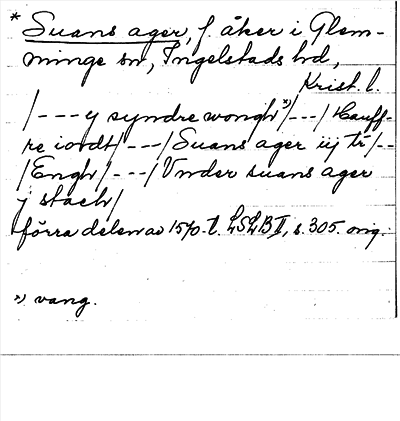 * Suans ager, f. åker i Glem-
minge sn, Ingelstads hd,
Krist. l.
/---y syndre wongh *)/---/ Hauff-
re iordt/---/ Suans ager iij tr/--
/Engh/---/ Vnder suans ager
j stach/
förra delen av 1570-t. LSLB II, s. 305. orig.
*) vang.